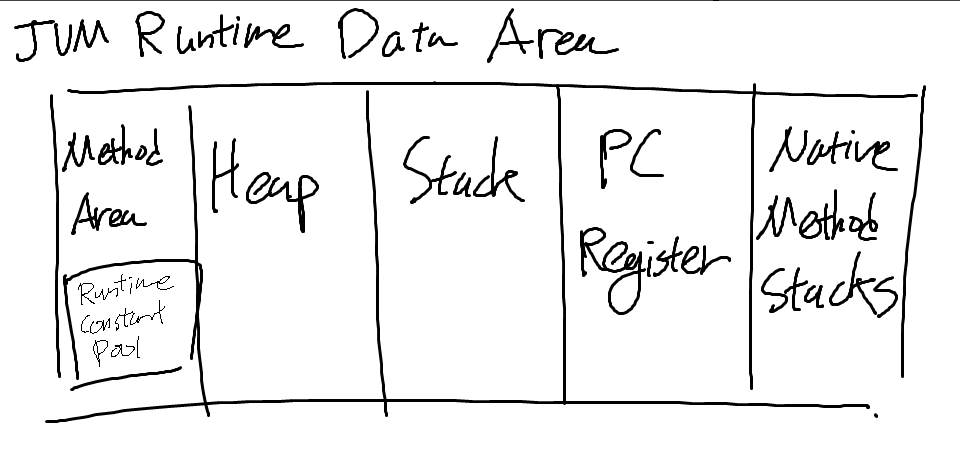 JVM Runtime Data Area
Method
Area
Runtime
Constant
Pool
Heap
Stack
PC
Register
Native
Method
Stacks